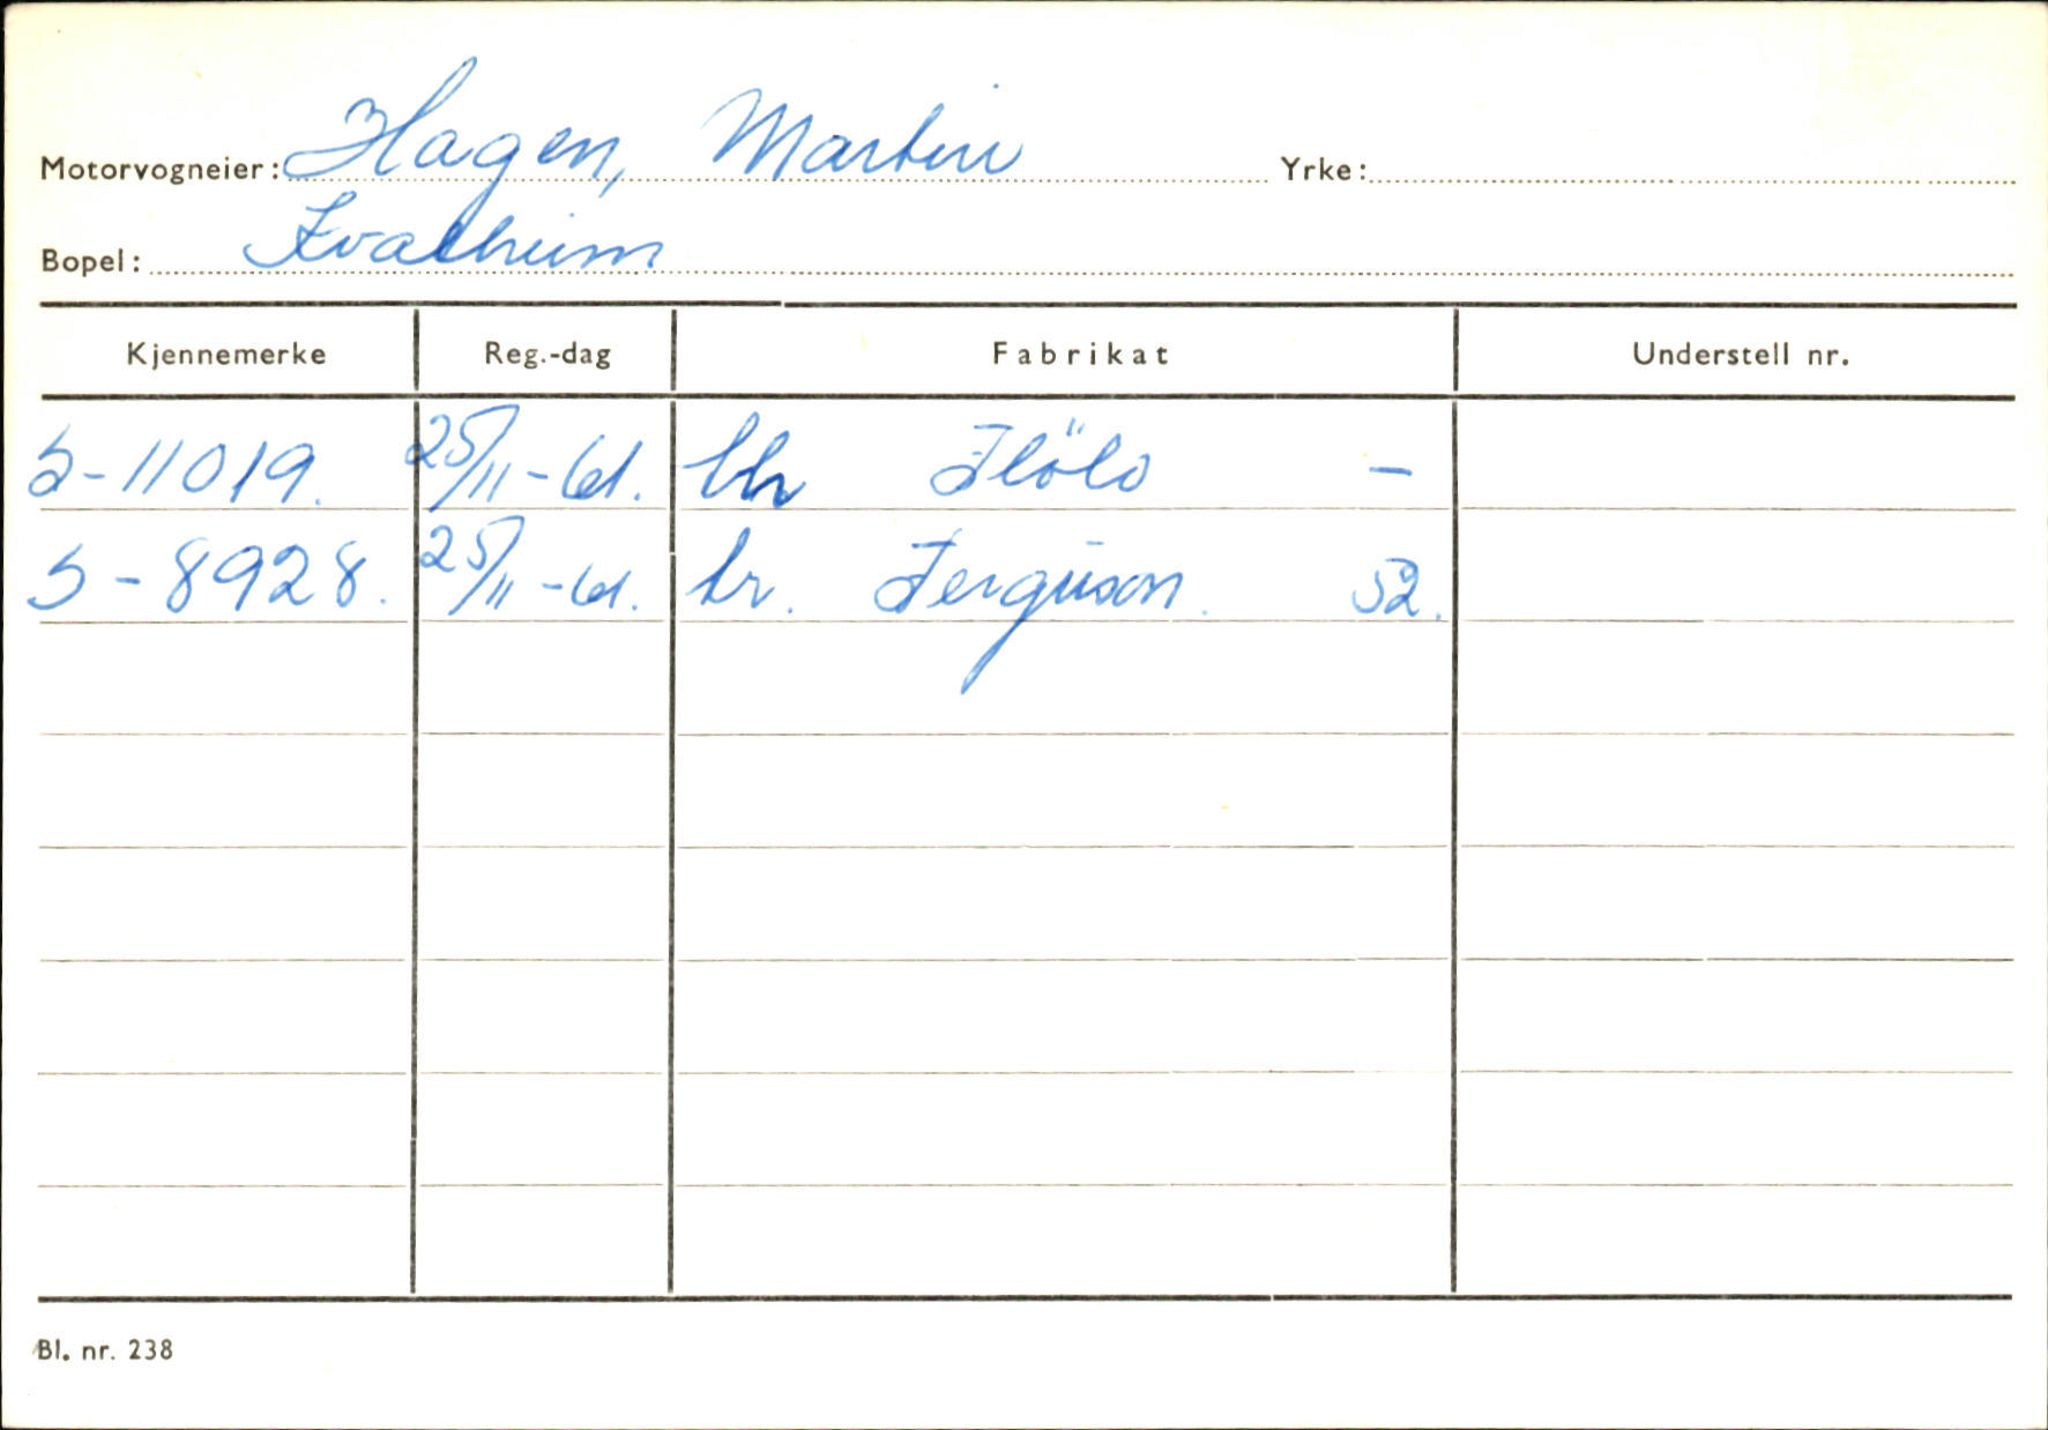 Motorvogneier: Hagen, Martin Yrke:
Bopel: Kvalheim
Kjennemerke Reg.-dag Fabrikat Understell nr.
S-11019. 25/11-61. -
S-8928. 25/11-61. tr. Ferguson. 52.
Bl. nr. 238